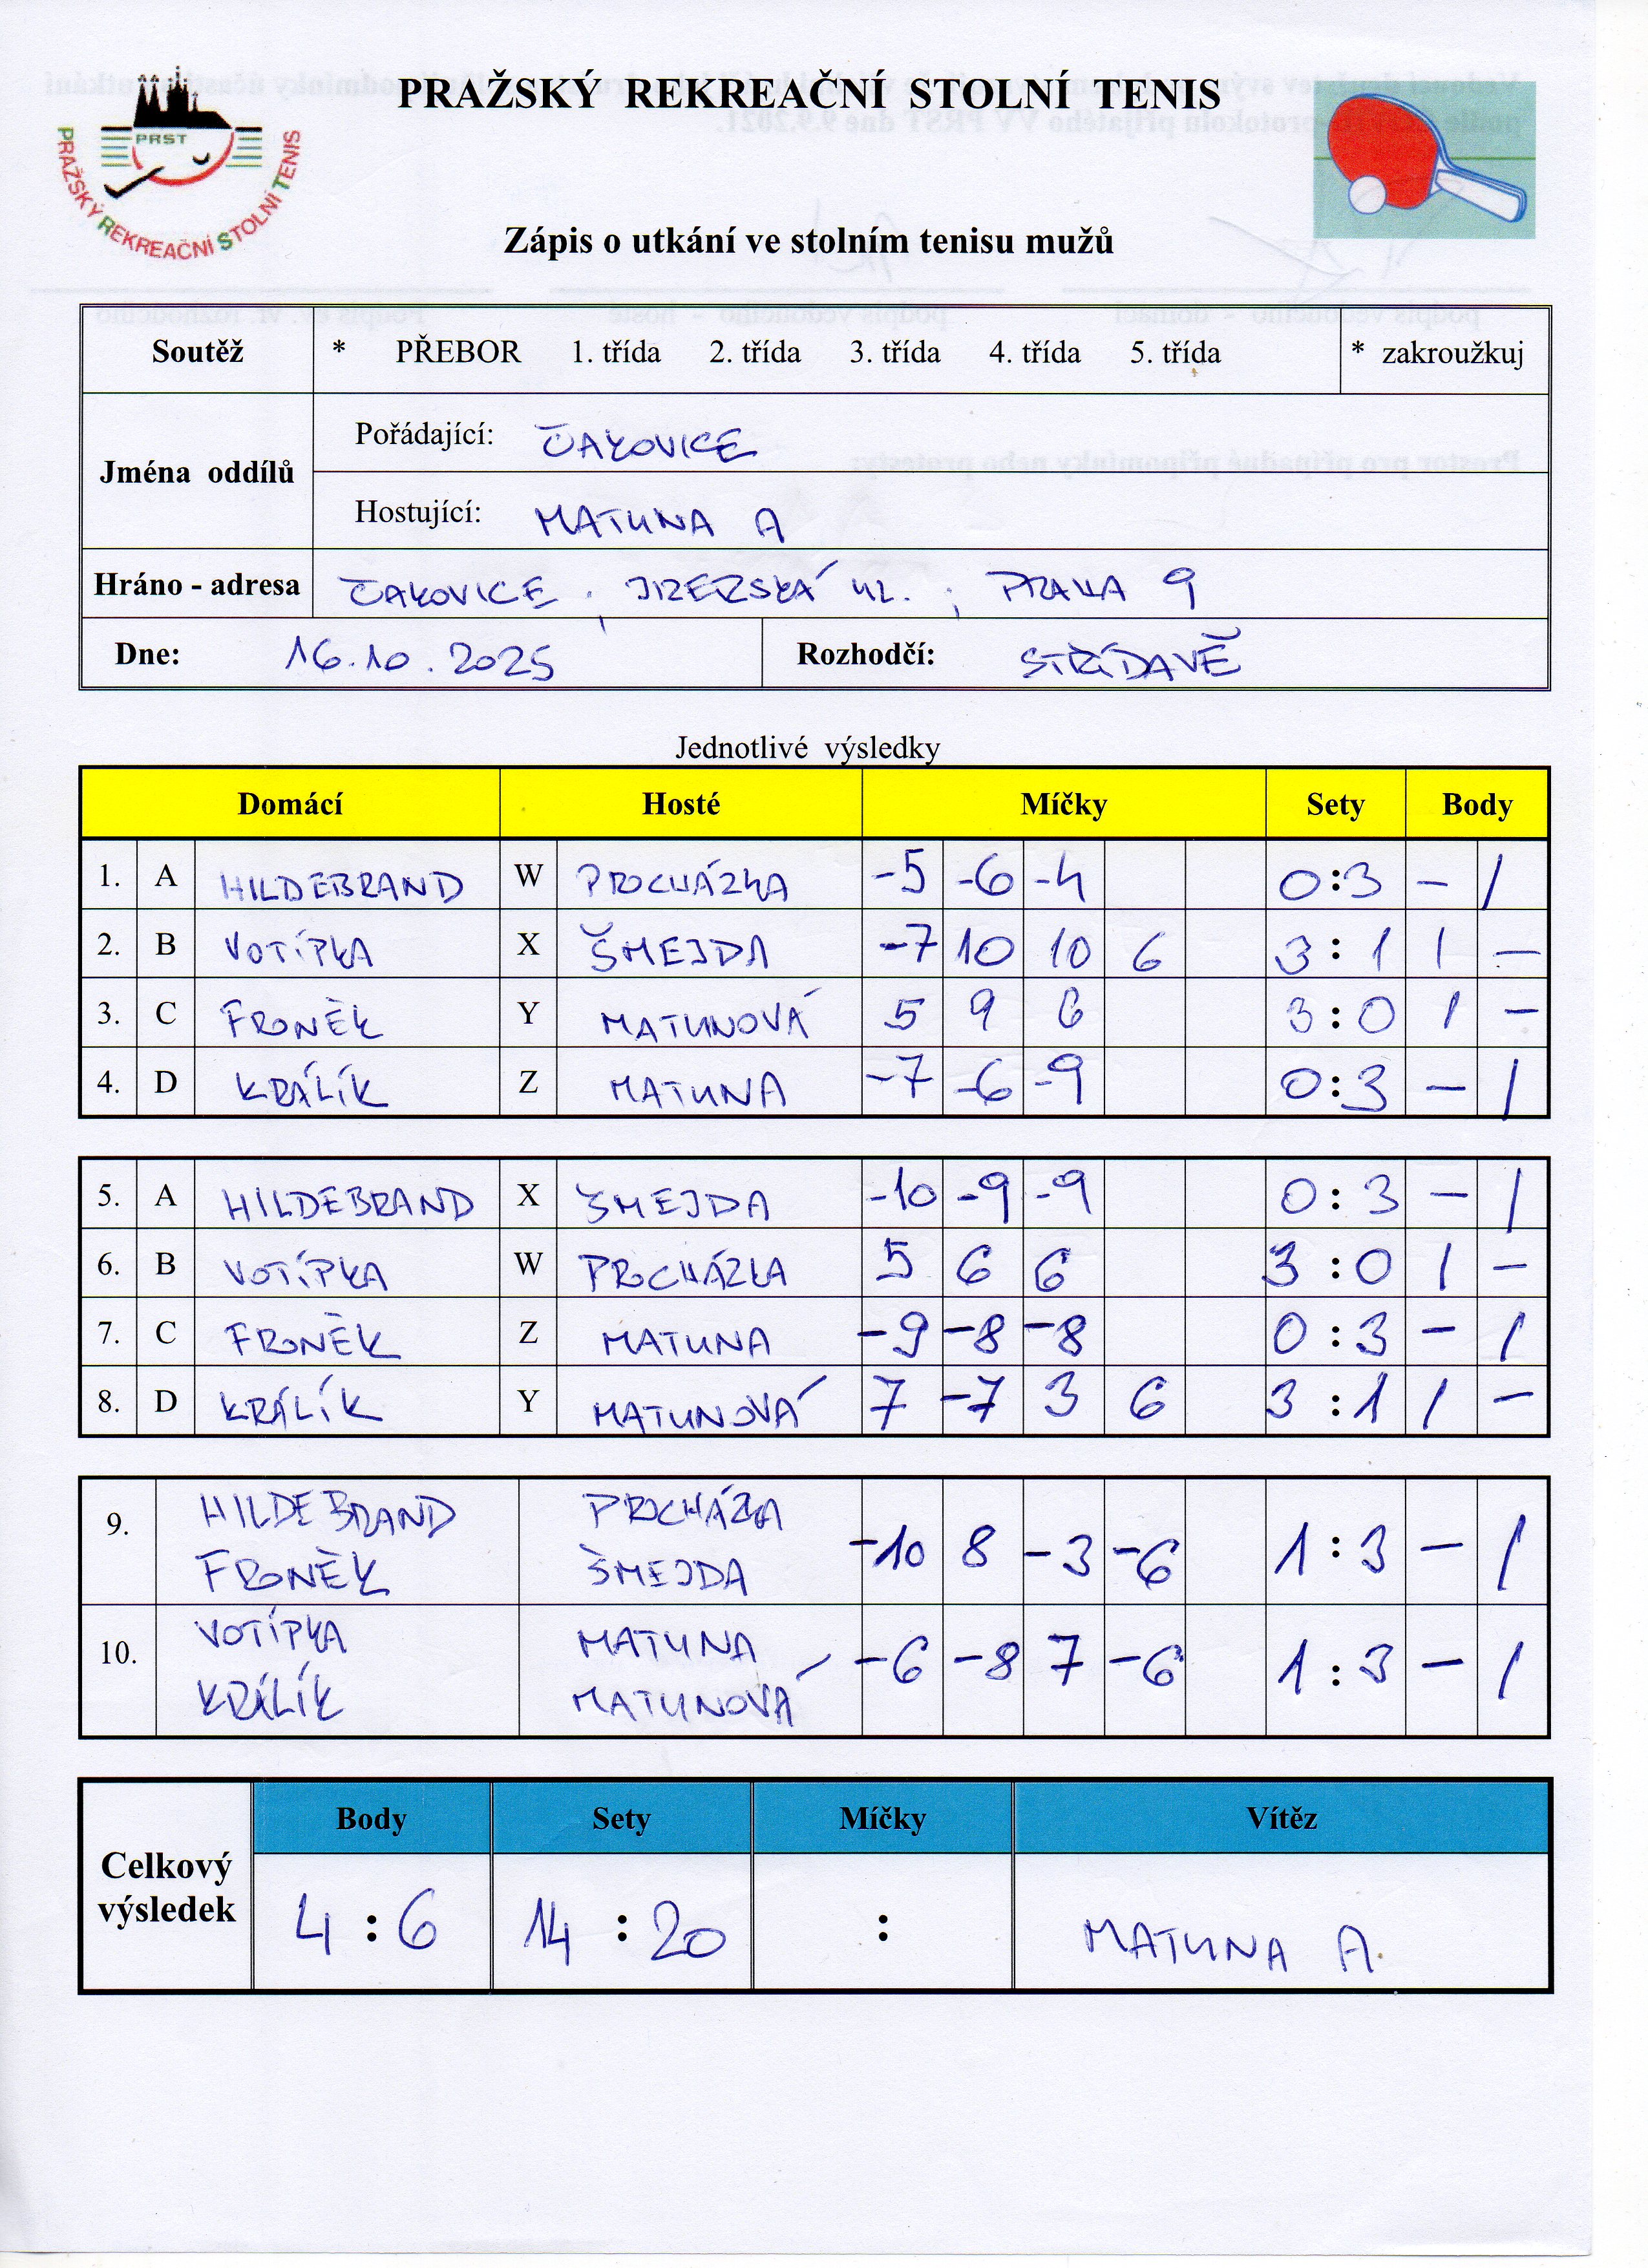 PRAŽSKÝ REKREAČNÍ STOLNÍ TENIS
PRST
PRAŽSKÝ REKREAČNÍ STOLNÍ TENIS
Zápis o utkání ve stolním tenisu mužů
Soutěž * PŘEBOR 1. třída 2. třída 3. třída 4. třída 5. třída * zakroužkuj
Jména oddílů
Pořádající: ČAKOVICE
Hostující: MATUNA A
Hráno - adresa ČAKOVICE, JIZERSKÁ UL., PRAHA 9
Dne: 16.10.2025 Rozhodčí: STŘÍDAVĚ
Jednotlivé výsledky
Domácí Hosté Míčky Sety Body
1. A HILDEBRAND W PROCHÁZKA -5 -6 -4 0:3 - 1
2. B VOTÍPKA X ŠMEJDA -7 10 10 6 3:1 1 -
3. C FRONĚK Y MATUNOVÁ 5 9 6 3:0 1 -
4. D KRÁLÍK Z MATUNA -7 -6 -9 0:3 - 1
5. A HILDEBRAND X ŠMEJDA -10 -9 -9 0:3 - 1
6. B VOTÍPKA W PROCHÁZKA 5 6 6 3:0 1 -
7. C FRONĚK Z MATUNA -9 -8 -8 0:3 - 1
8. D KRÁLÍK Y MATUNOVÁ 7 -7 3 6 3:1 1 -
HILDEBRAND PROCHÁZKA
9. -10 8 -3 -6 1:3 - 1
FRONĚK ŠMEJDA
VOTÍPKA MATUNA
10. -6 -8 7 -6 1:3 - 1
KRÁLÍK MATUNOVÁ
Body Sety Míčky Vítěz
Celkový výsledek 4:6 14:20 : MATUNA A.